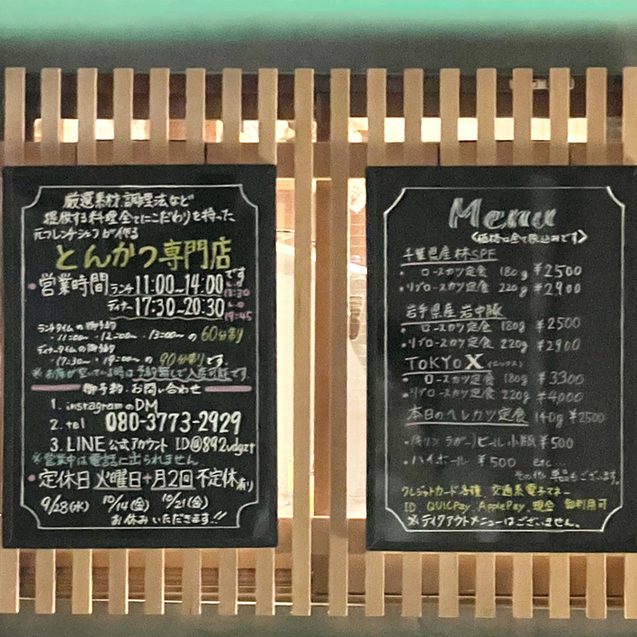 厳選素材、調理法など
提供する料理全てにこだわりを持った
元フレンチシェフが作る
とんかつ専門店
です
営業時間 ランチ 11:00〜14:00
L.O 13:30
ディナー 17:30〜20:30
L.O 19:45
ランチタイムの御予約
・11:00〜・12:00〜・13:00〜の60分制
ディナータイムの御予約
・17:30〜・19:00〜の90分制です。
※お席が空いている時は予約無しで入店可能です。
御予約・お問い合わせ
1. instagramのDM
2. tel 080-3773-2929
3. LINE 公式アカウント ID@892vdgzt
※営業中は電話に出られません
・定休日 火曜日+月2回 不定休有り
9/28(水) 10/14(金) 10/21(金)
お休みいただきます!!
Menu
〈価格は全て税込みです〉
千葉県産 林SPF
・ロースカツ定食 180g ¥2500
・リブロースカツ定食 220g ¥2900
岩手県産 岩中豚
・ロースカツ定食 180g ¥2500
・リブロースカツ定食 220g ¥2900
TOKYO X
・ロースカツ定食 180g ¥3300
・リブロースカツ定食 220g ¥4000
本日のヘレカツ定食 140g ¥2500
・(キリン ラガー)ビール 小瓶 ¥500
・ハイボール ¥500 etc
その他 単品もございます。
クレジットカード各種 交通系電子マネー
ID QUICPay ApplePay 現金 御利用可
※テイクアウトメニューはございません。